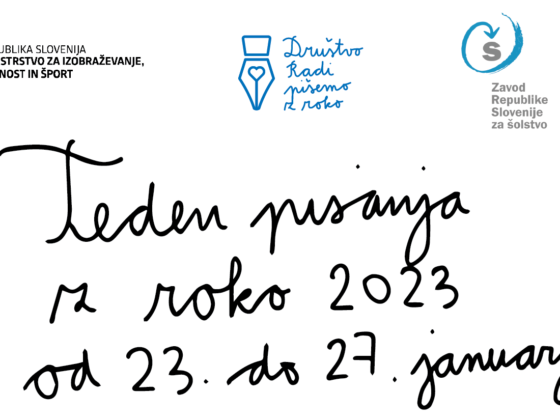 UBLIKA SLOVENIJA
STRSTVO ZA IZOBRAŽEVANJE,
NOST IN ŠPORT
Društvo
Radi
pišemo
z roko
Š
Zavod
Republike
Slovenije
za šolstvo
Teden pisanja
z roko 2023
od 23. do 27. januarj